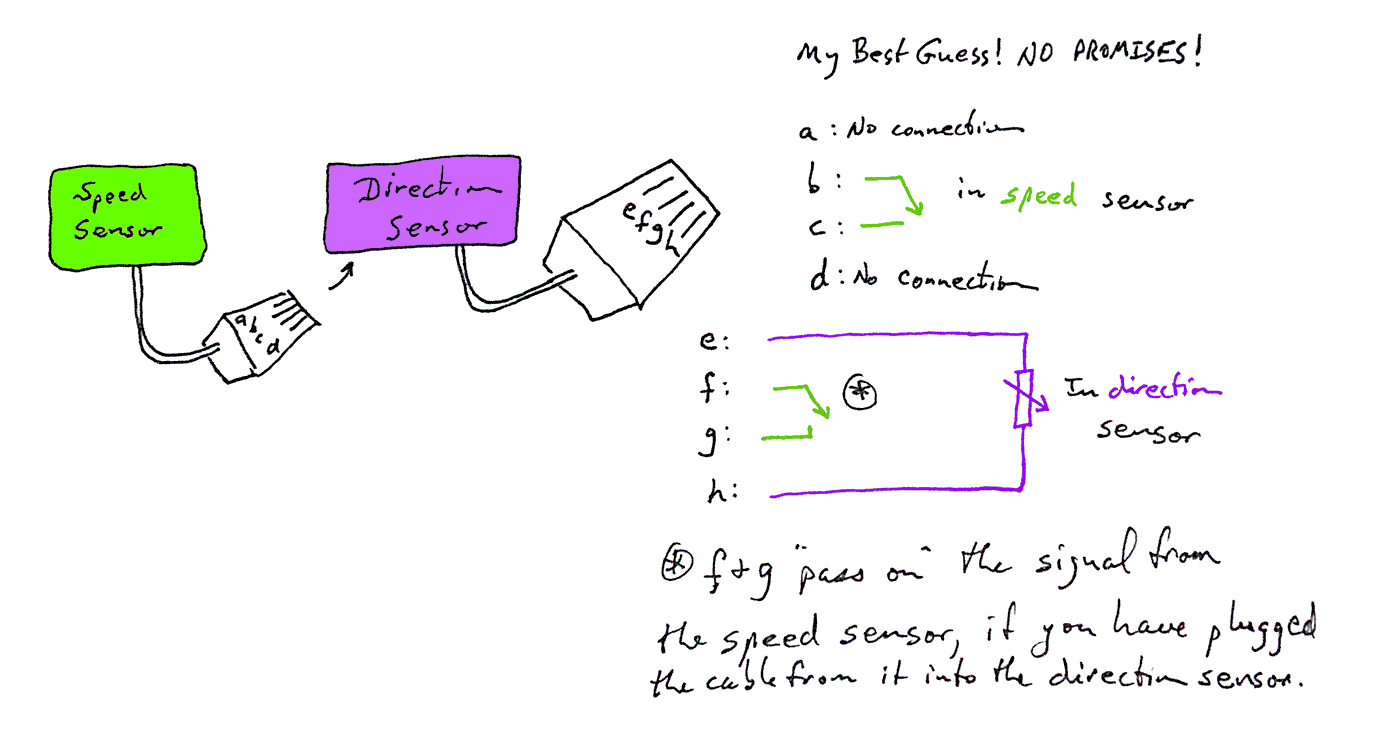 My Best Guess! NO PROMISES!
a: No connection
b:
c:
in speed sensor
d: No connection
Speed
Sensor
Direction
Sensor
a b c d
e f g h
e:
f:
g:
h:
In direction
sensor
* f+g "pass on" the signal from
the speed sensor, if you have plugged
the cable from it into the direction sensor.